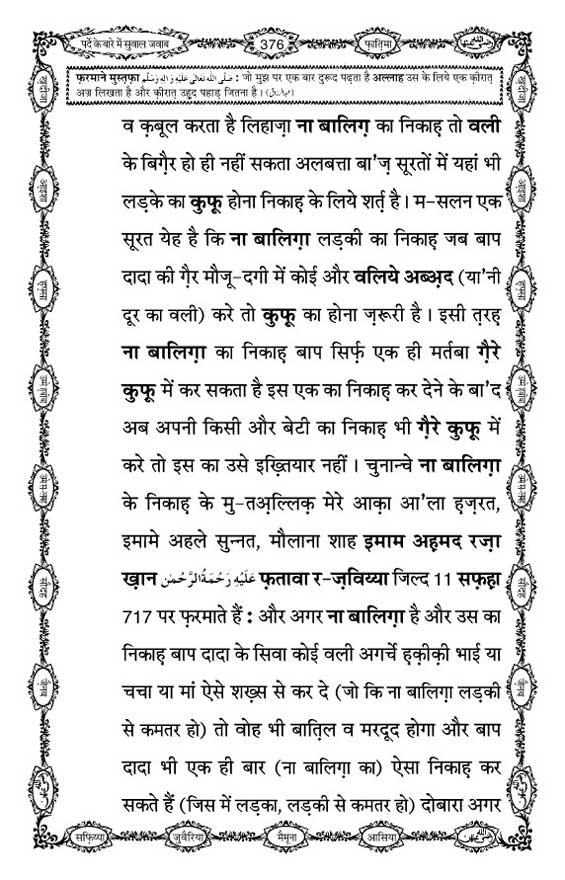 पर्दे के बारे में सुवाल जवाब
376
फ़ातिमा
फ़रमाने मुस्तफ़ा صَلَّى اللهُ تَعَالٰى عَلَيْهِ وَاٰلِهٖ وَسَلَّم : जो मुझ पर एक बार दुरूद पढ़ता है अल्लाह उस के लिये एक क़ीरात़
अज्र लिखता है और क़ीरात़ उहुद पहाड़ जितना है । (عبدالرزاق)
व क़बूल करता है लिहाज़ा ना बालिग़ का निकाह़ तो वली
के बिग़ैर हो ही नहीं सकता अलबत्ता बा'ज़ सूरतों में यहां भी
लड़के का कुफ़ू होना निकाह़ के लिये शर्त़ है । म-सलन एक
सूरत येह है कि ना बालिग़ा लड़की का निकाह़ जब बाप
दादा की ग़ैर मौजू-दगी में कोई और वलिये अब्अ़द (या'नी
दूर का वली) करे तो कुफ़ू का होना ज़रूरी है । इसी त़रह़
ना बालिग़ा का निकाह़ बाप सिर्फ़ एक ही मर्तबा ग़ैरे
कुफ़ू में कर सकता है इस एक का निकाह़ कर देने के बा'द
अब अपनी किसी और बेटी का निकाह़ भी ग़ैरे कुफ़ू में
करे तो इस का उसे इख़्तियार नहीं । चुनान्चे ना बालिग़ा
के निकाह़ के मु-तअ़ल्लिक़ मेरे आक़ा आ'ला ह़ज़रत,
इमामे अहले सुन्नत, मौलाना शाह इमाम अह़मद रज़ा
ख़ान عَلَيْهِ رَحْمَةُ الرَّحْمٰن फ़तावा र-ज़विय्या जिल्द 11 सफ़ह़ा
717 पर फ़रमाते हैं : और अगर ना बालिग़ा है और उस का
निकाह़ बाप दादा के सिवा कोई वली अगर्चे ह़क़ीक़ी भाई या
चचा या मां ऐसे शख़्स से कर दे (जो कि ना बालिग़ा लड़की
से कमतर हो) तो वोह भी बात़िल व मरदूद होगा और बाप
दादा भी एक ही बार (ना बालिग़ा का) ऐसा निकाह़ कर
सकते हैं (जिस में लड़का, लड़की से कमतर हो) दोबारा अगर
सफ़िय्या
जुवैरिया
मैमूना
आसिया